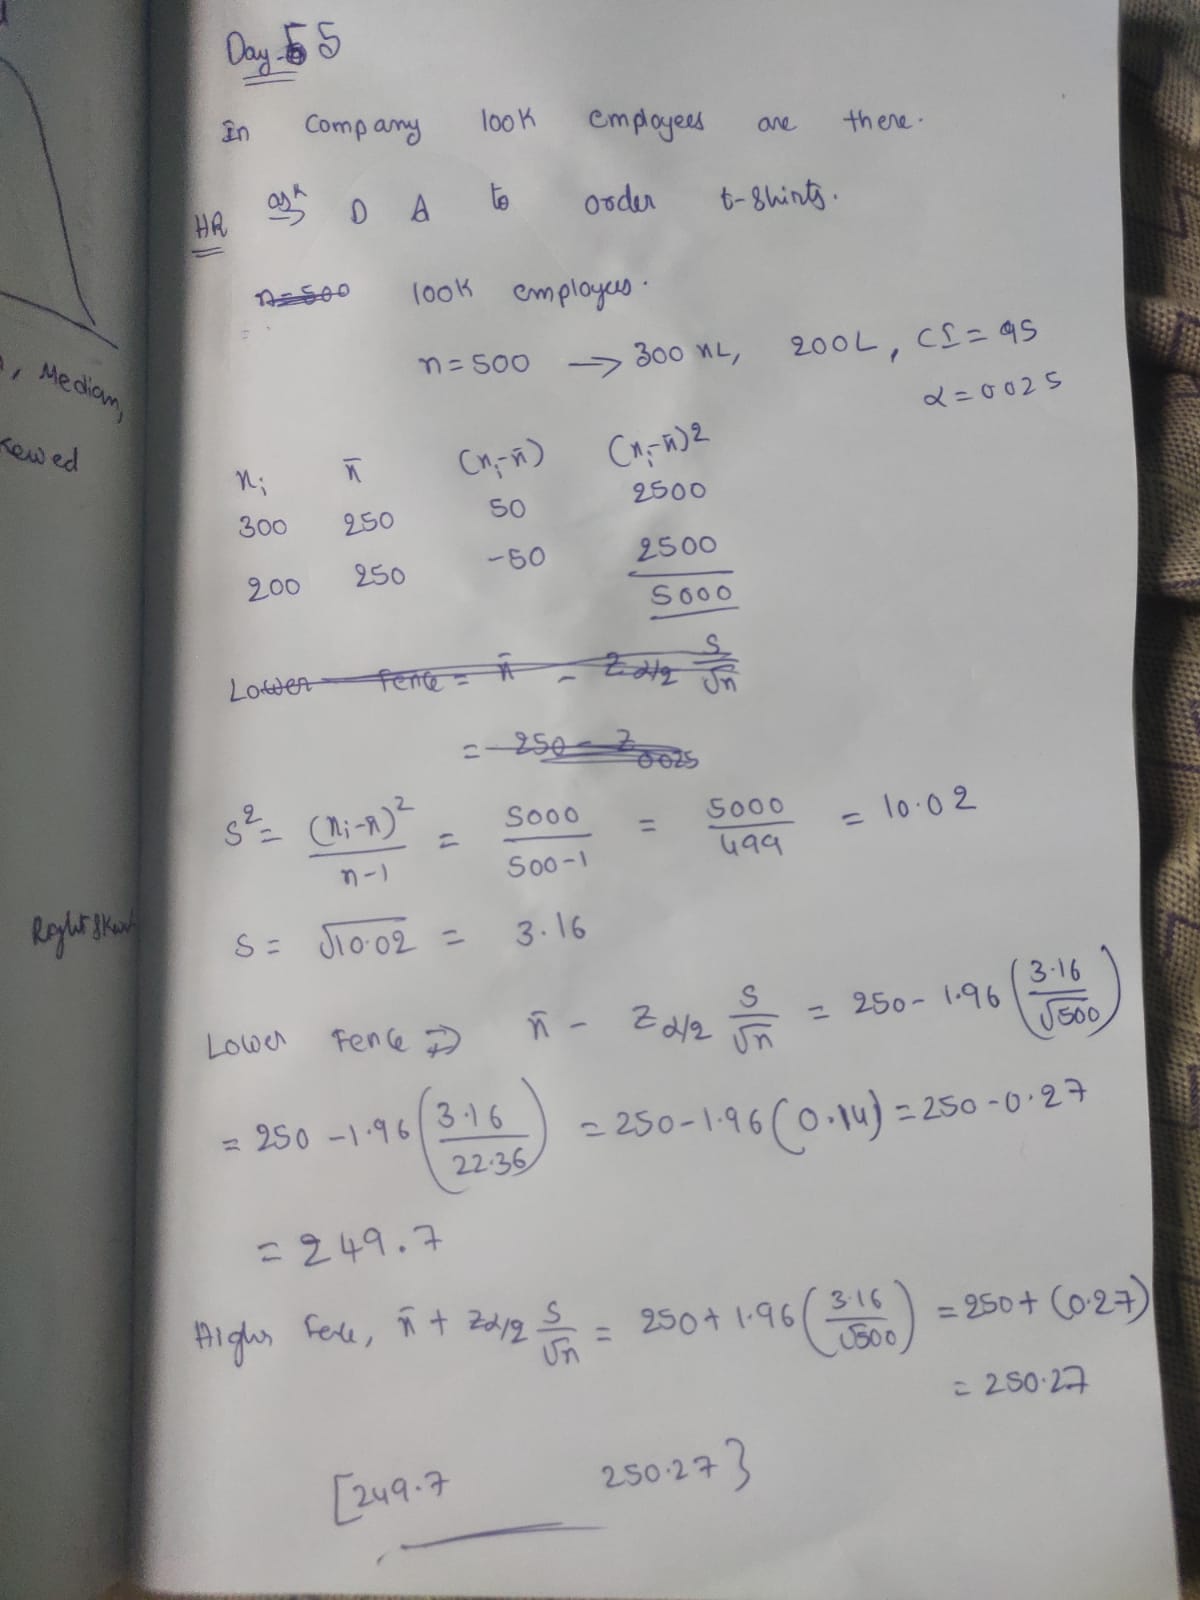 Day-5
In Company 100K employees are there.
HR ask D A to order t-shirts.
n=500 100K employees.
n=500 → 300 XL, 200L, CI=95
α=0025
xi x̄ (xi-x̄) (xi-x̄)2
300 250 50 2500
200 250 -50 2500
5000
Lower Fence = x̄ - Zα/2 S/√n
= 250 - Z0025
S²= (xi-x̄)²/n-1 = 5000/500-1 = 5000/499 = 10.02
S= √10.02 = 3.16
Lower Fence ⇒ x̄ - Zα/2 S/√n = 250- 1.96 (3.16/√500)
= 250 -1.96 (3.16/22.36) = 250-1.96 (0.14) = 250-0.27
= 249.7
Highr Fence, x̄ + Zα/2 S/√n = 250+ 1.96 (3.16/√500) = 250+ (0.27)
= 250.27
[249.7 250.27}
, Median,
kewed
Right Skew